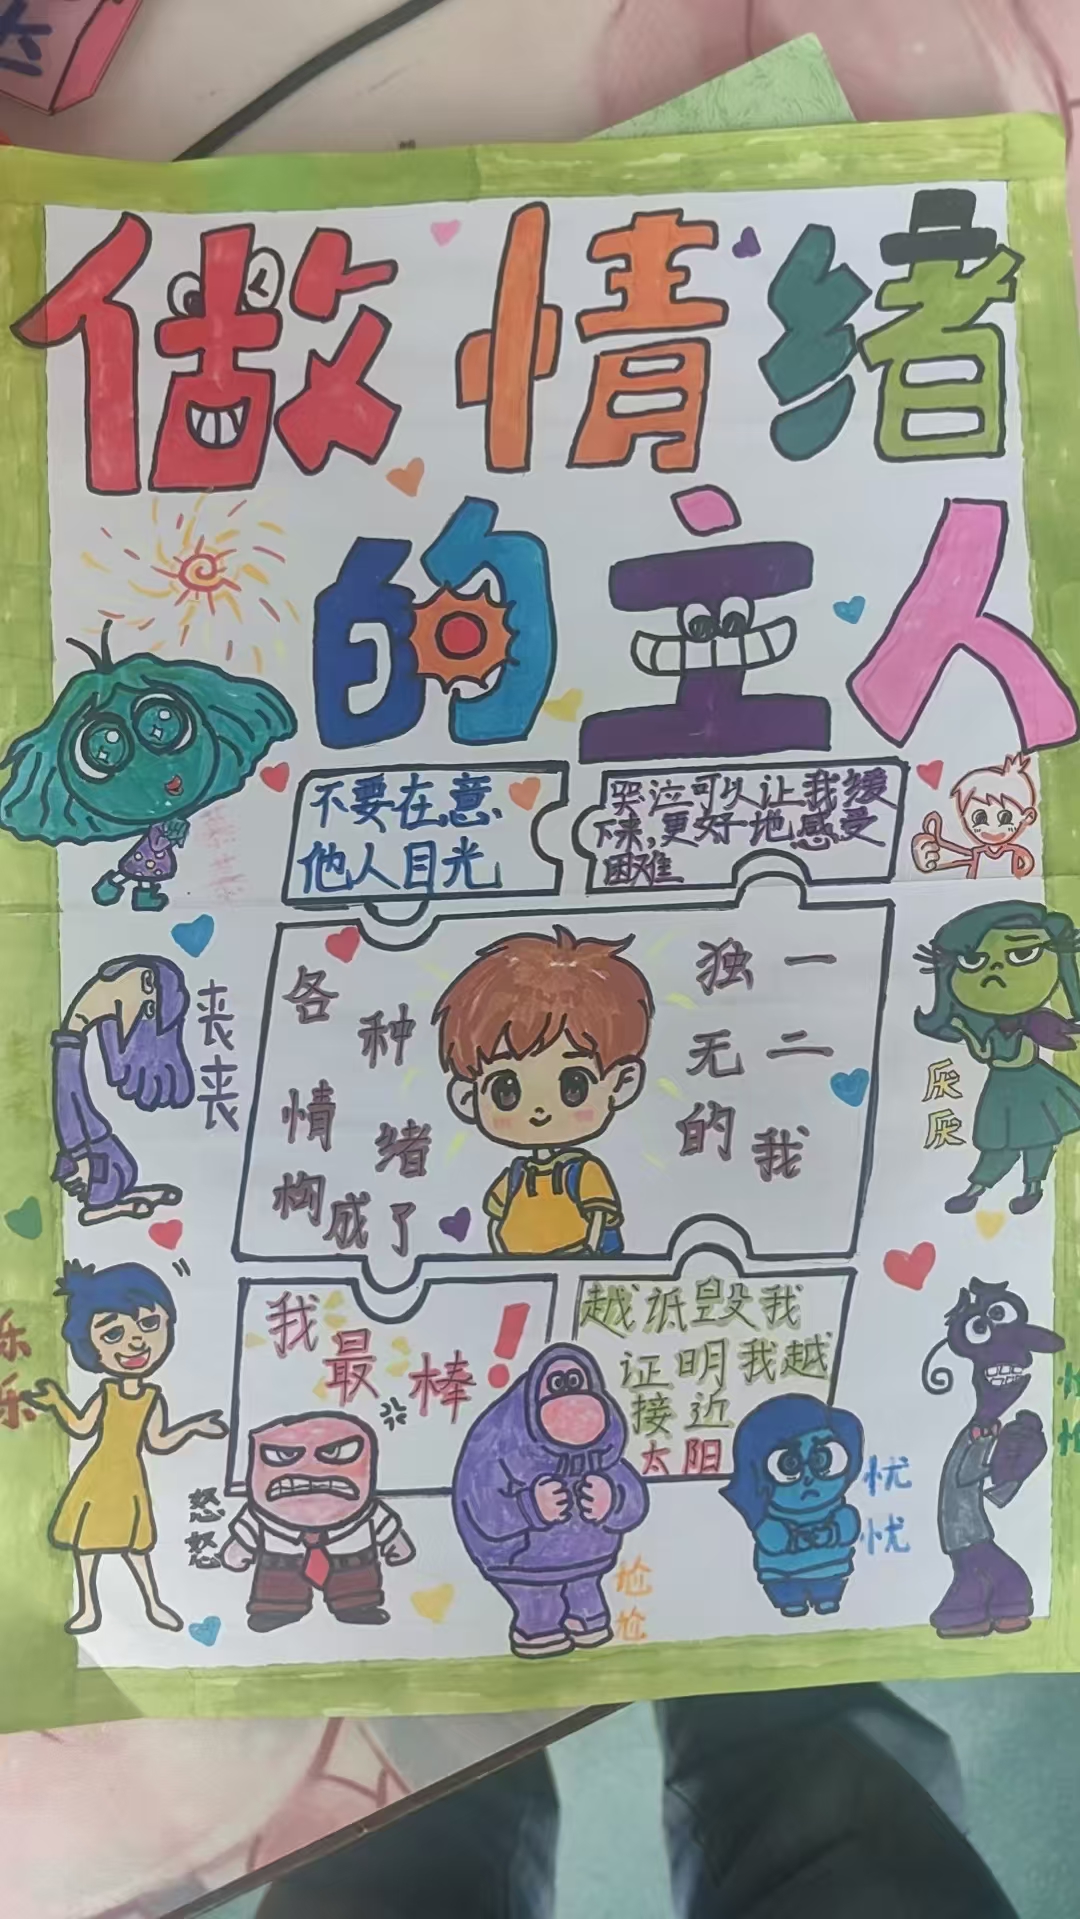 做情绪
的主人
不要在意
他人目光
哭泣可以让我缓
下来,更好地感受
困难
各种情绪构成了
独一无二的我
丧丧
厌厌
我最棒!
越诋毁我
证明我越
接近
太阳
乐乐
怒怒
尬尬
忧忧